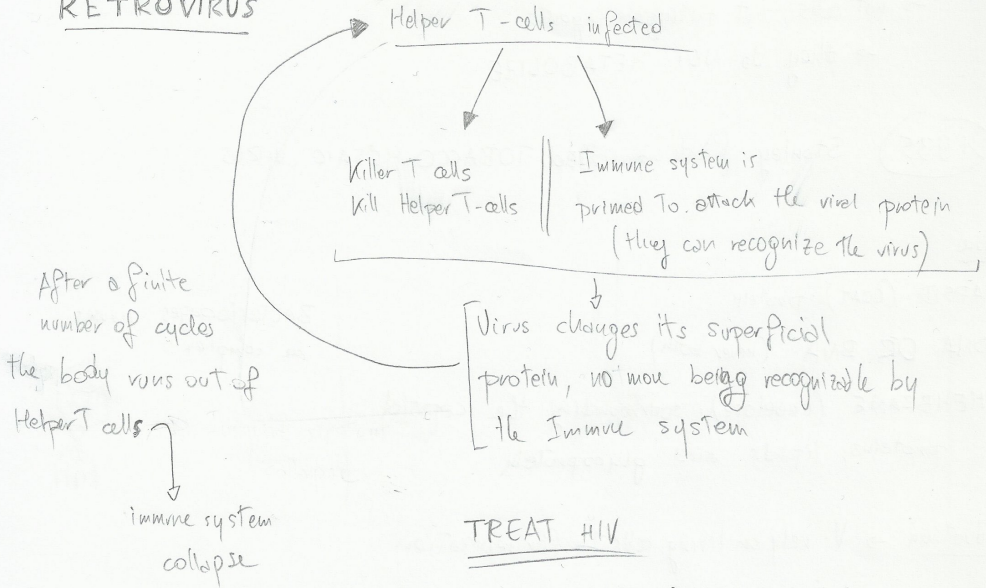 RETROVIRUS
Helper T-cells infected
Killer T cells
Kill Helper T-cells
Immune system is
primed to attack the viral protein
(they can recognize the virus)
Virus changes its superficial
protein, no more being recognizable by
the Immune system
After a finite
number of cycles
the body runs out of
Helper T cells
immune system
collapse
TREAT HIV